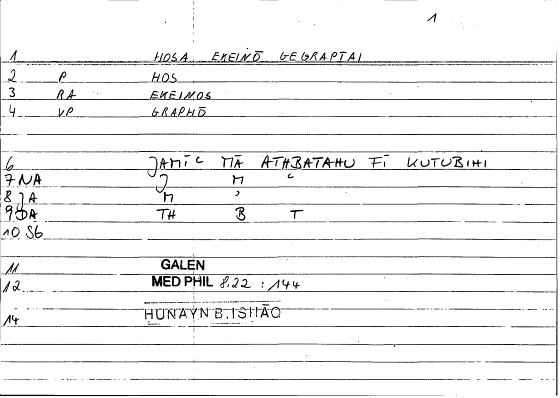 1
1 HOSA EKEINŌ GEGRAPTAI
2 P HOS
3 RA EKEINOS
4 VP GRAPHŌ
6 JAMĪC MĀ ATHBATAHU FĪ KUTUBIHI
7 NA J M C
8 JA M '
9 DA TH B T
10 Sb
11 GALEN
12 MED PHIL 8.22 : 144
HUNAYN B. ISHĀQ
14